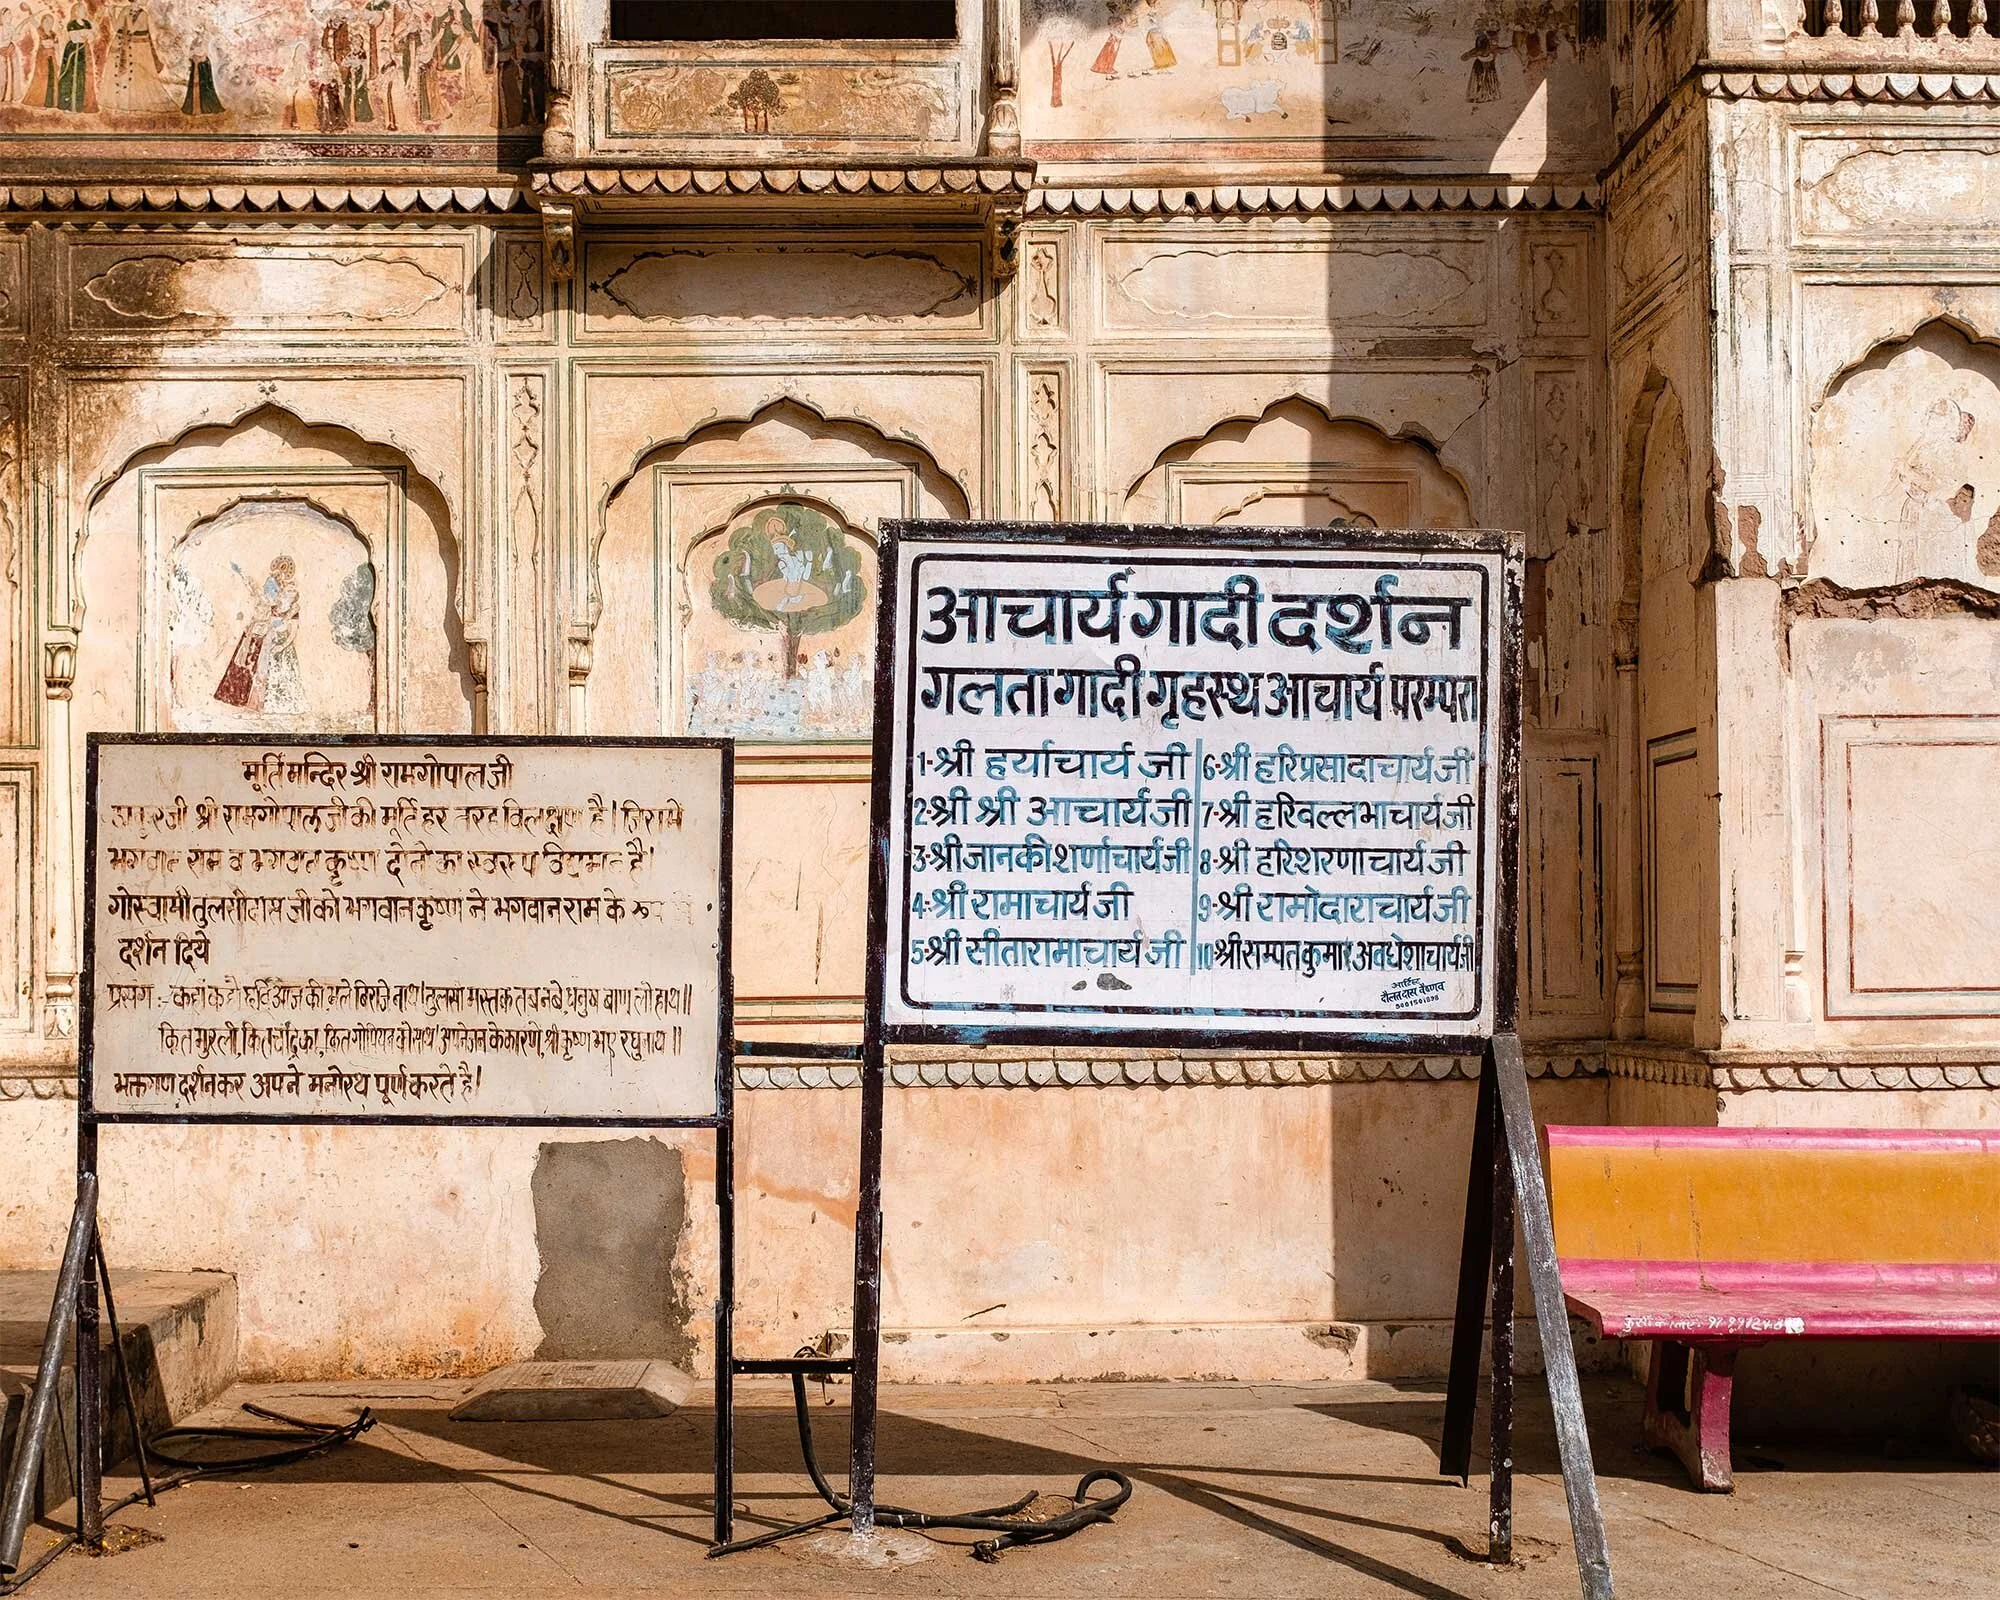 मूर्ति मन्दिर श्री रामगोपाल जी
ठाकुरजी श्री रामगोपालजी की मूर्ति हर तरह विलक्षण है। जिसमे
भगवान राम व भगवान कृष्ण दोनो का स्वरुप विद्यमान है।
गोस्वामी तुलसीदास जी को भगवान कृष्ण ने भगवान राम के रूप
दर्शन दिये
प्रसंग :- कहा कहौ छवि आज की, भले बिराजे नाथ। तुलसी मस्तक तब नबे, धनुष बाण लो हाथ॥
कित मुरली, कित चंद्रिका, कित गोपियन को साथ। अपने जन के कारणे, श्री कृष्ण भए रघुनाथ॥
भक्तगण दर्शनकर अपने मनोरथ पूर्ण करते है।
आचार्य गादी दर्शन
गलता गादी गृहस्थ आचार्य परम्परा
1-श्री हर्याचार्य जी
2-श्री श्री आचार्य जी
3-श्री जानकी शर्णाचार्य जी
4-श्री रामाचार्य जी
5-श्री सीतारामाचार्य जी
6-श्री हरिप्रसादाचार्य जी
7-श्री हरिवल्लभाचार्य जी
8-श्री हरिशरणाचार्य जी
9-श्री रामोदाराचार्य जी
10-श्री सम्पतकुमार अवधेशाचार्य जी
आर्टिस्ट
दौलतदास वैष्णव